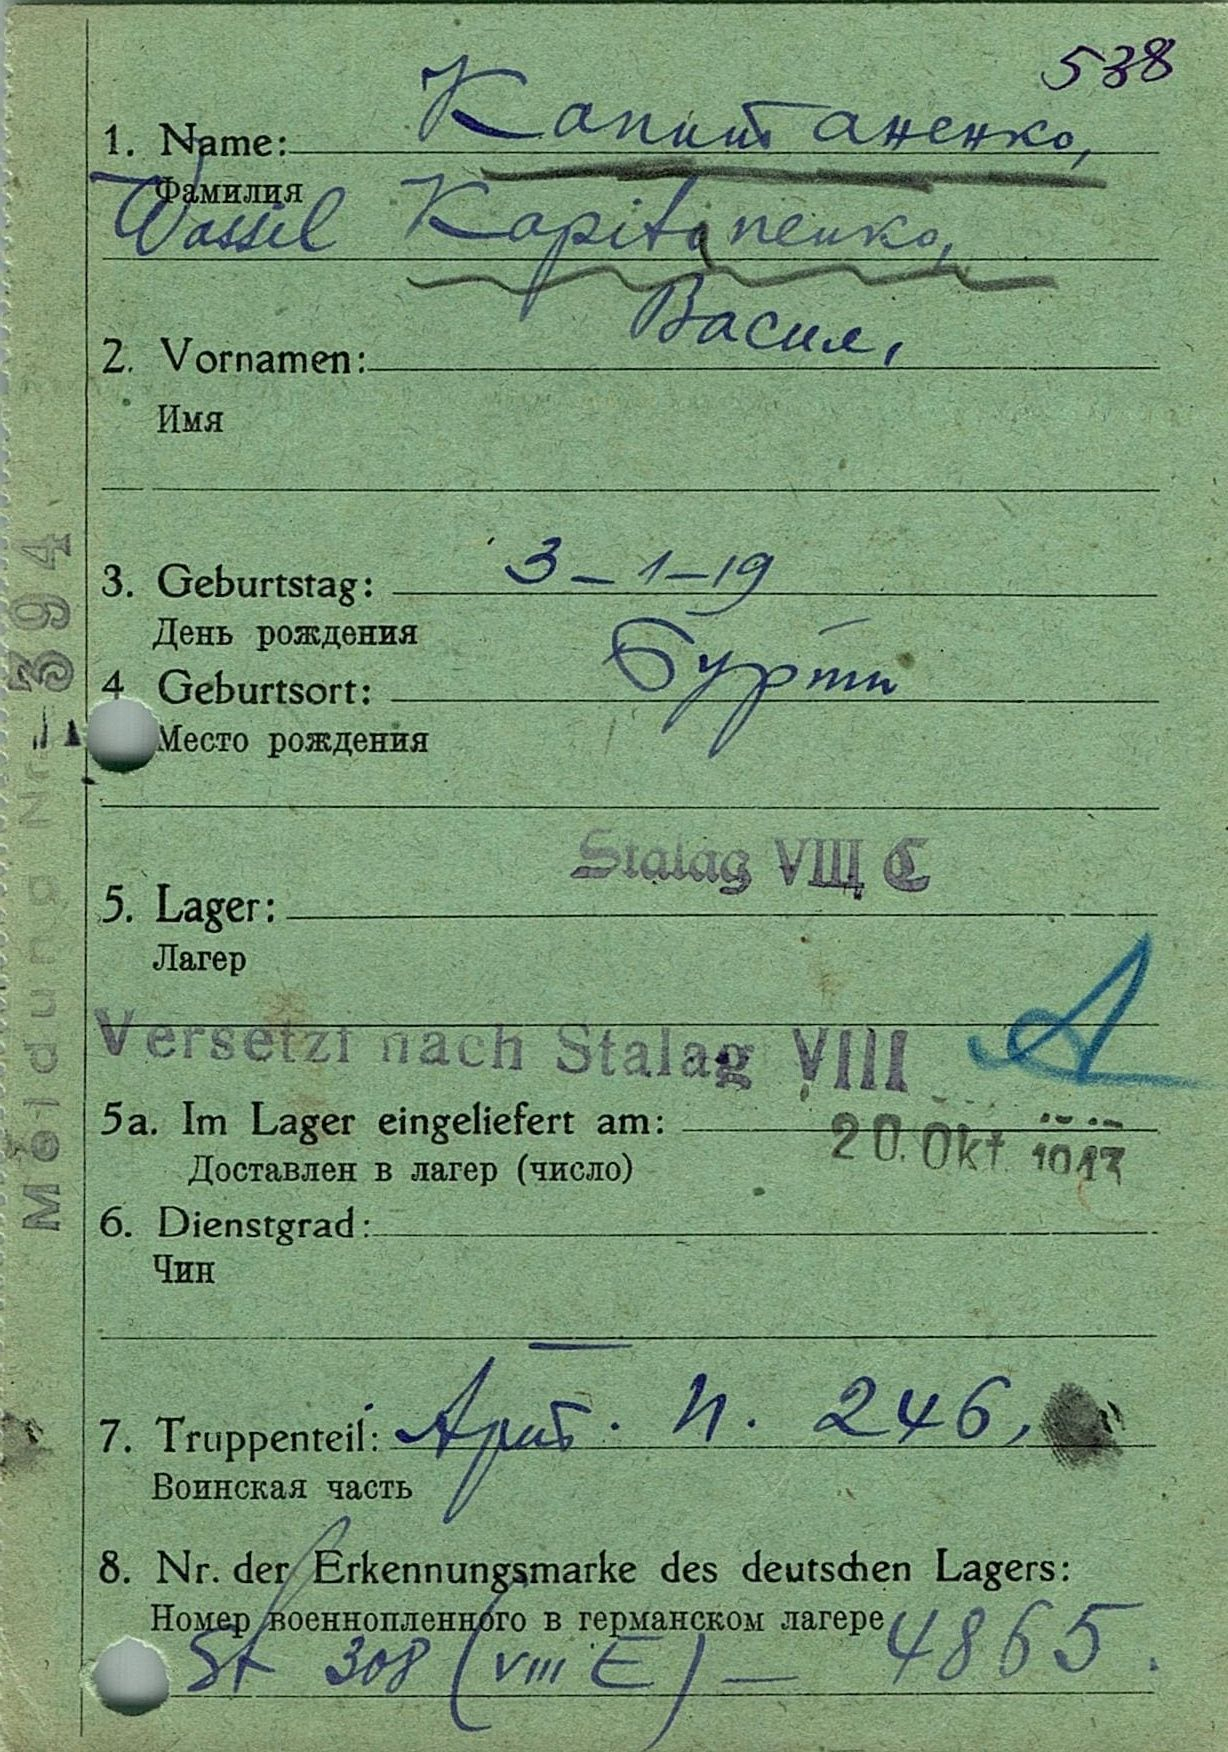 538
1. Name: Капитаненко,
Фамилия
Wassil Kapitanenko,
Васил,
2. Vornamen:
Имя
3. Geburtstag: 3-1-19
День рождения
4 Geburtsort: Бурти
Место рождения
Stalag VIII C
5. Lager:
Лагер
Versetzt nach Stalag VIII A
5a. Im Lager eingeliefert am: 20. Okt. 1943
Доставлен в лагер (число)
6. Dienstgrad:
Чин
7. Truppenteil: Арт. п. 246,
Воинская часть
8. Nr. der Erkennungsmarke des deutschen Lagers:
Номер военнопленного в германском лагере
St 308 (VIII E) — 4865.
Meldung Nr. 394